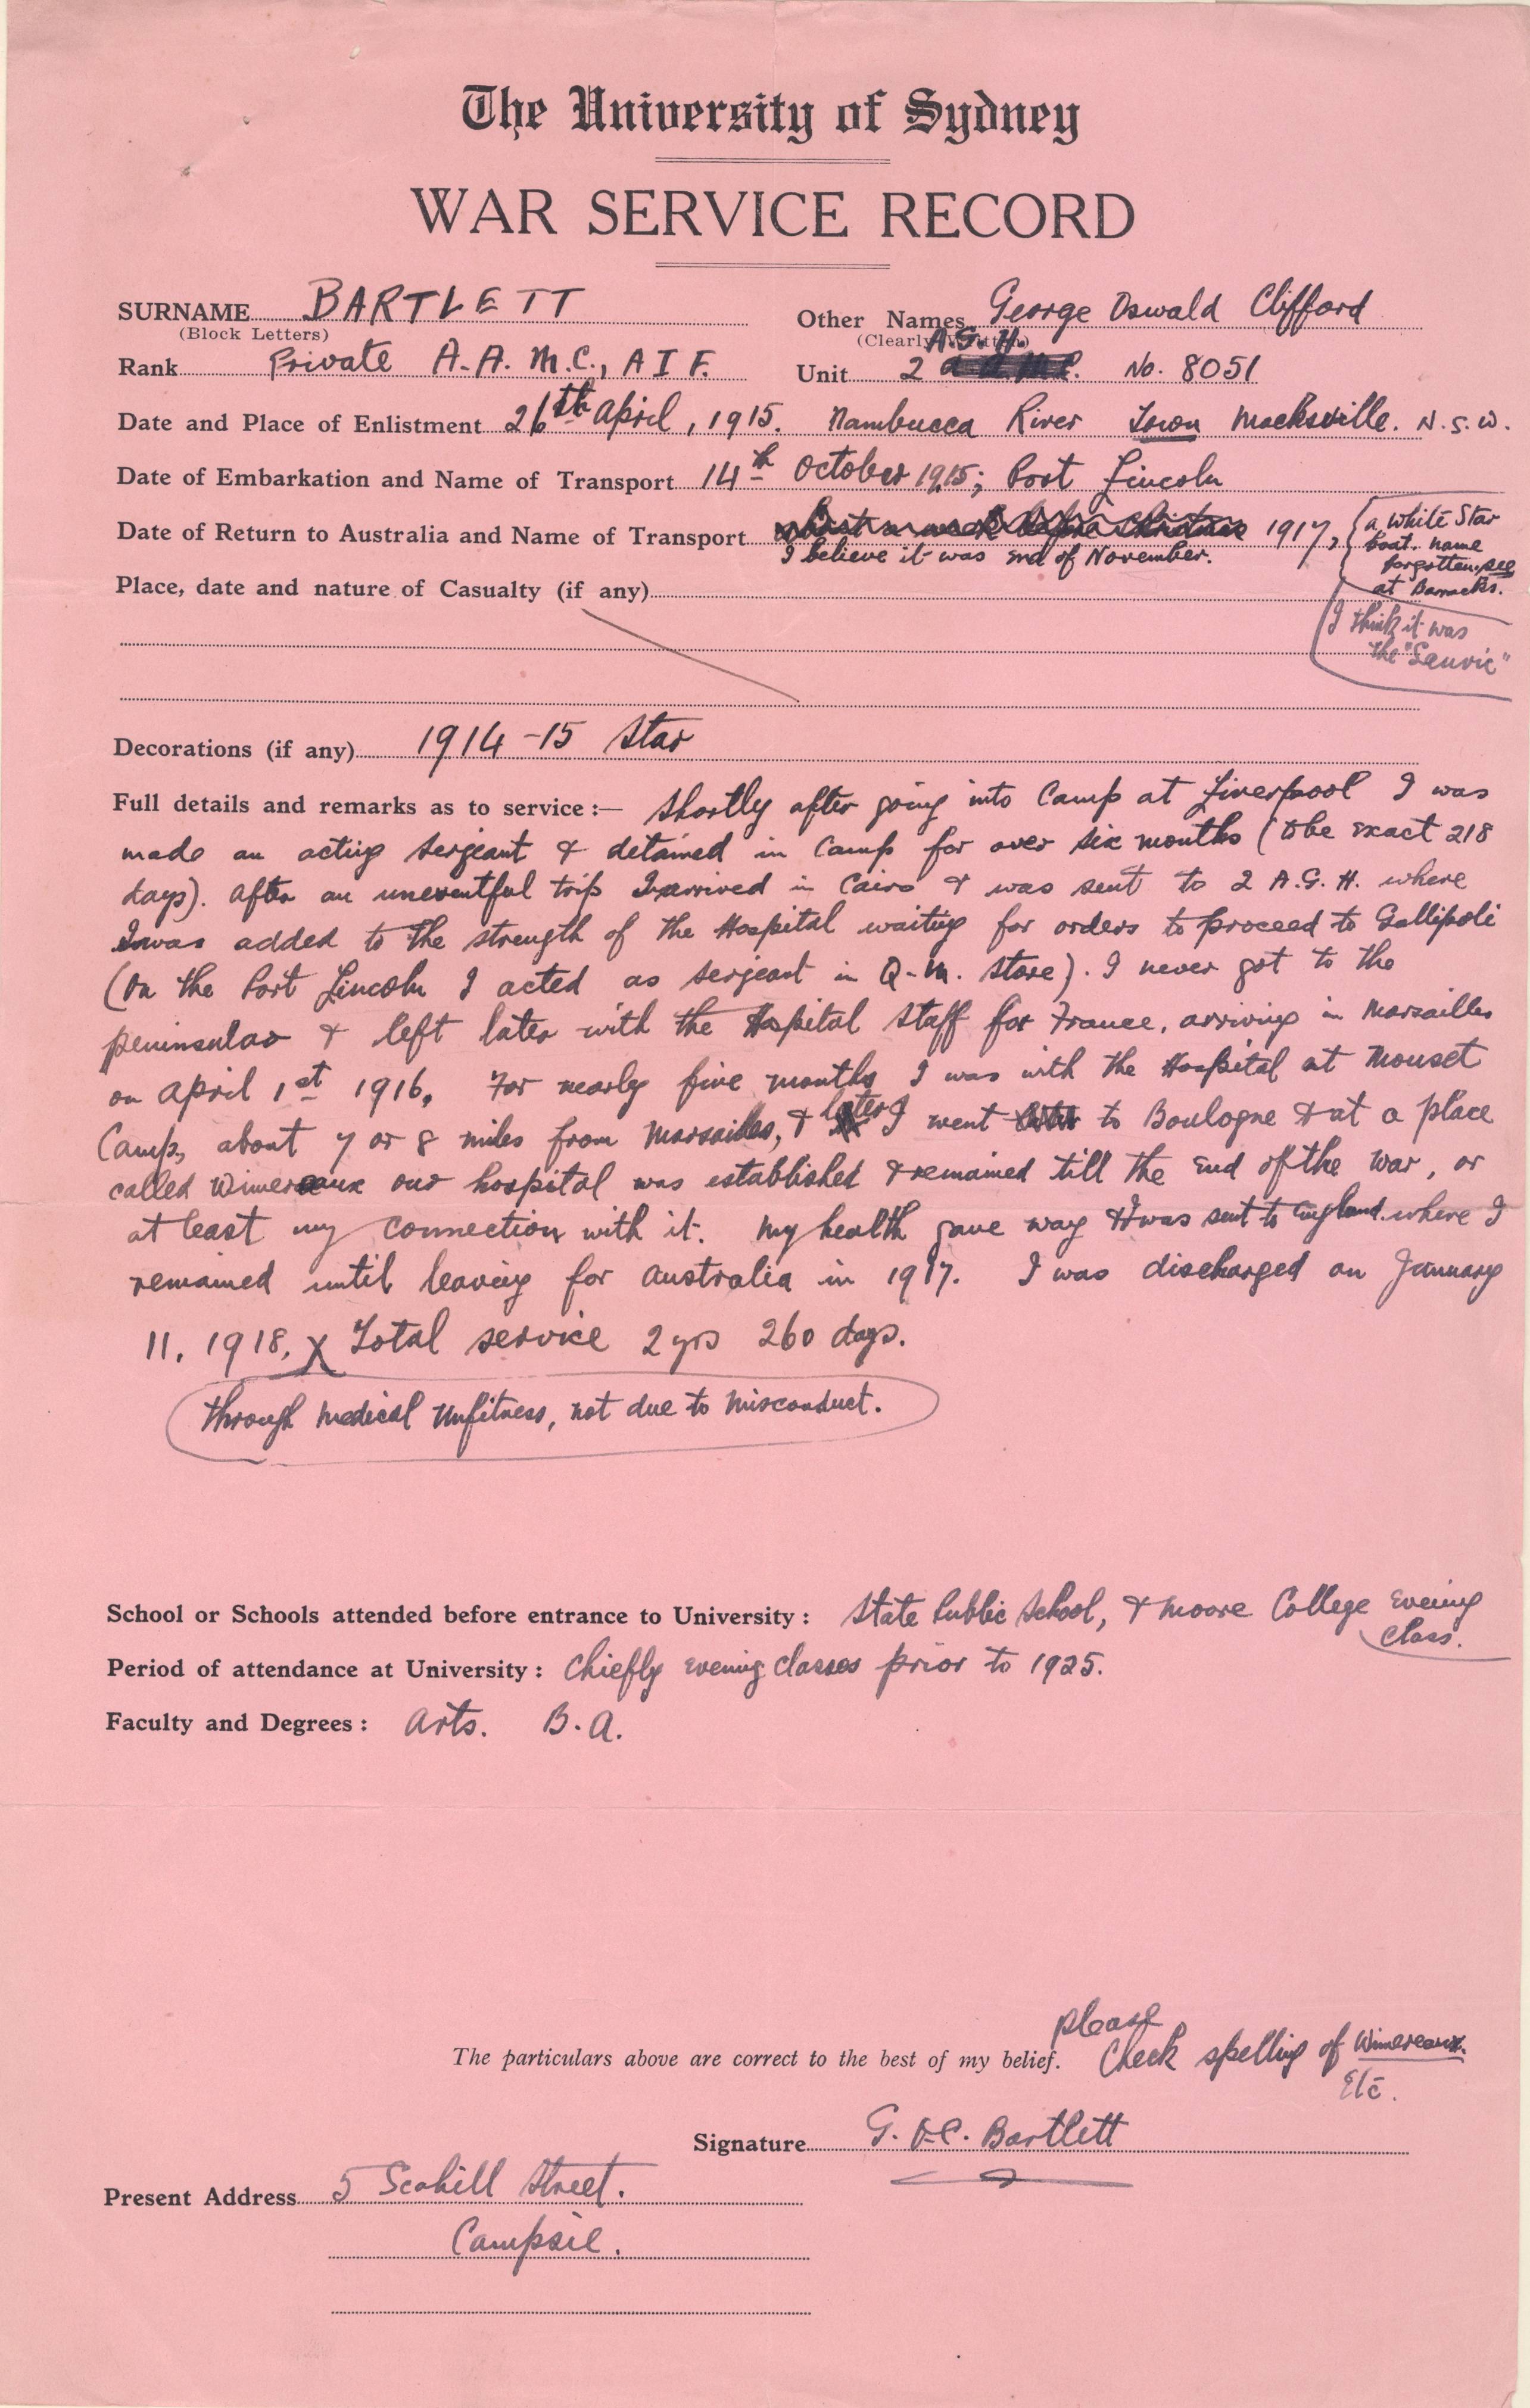 The University of Sydney
WAR SERVICE RECORD
SURNAME BARTLETT Other Names George Oswald Clifford
(Block Letters) (Clearly Written)
A.G.H.
Rank Private A.A.M.C., A I F. Unit 2 No. 8051
Date and Place of Enlistment 26th April, 1915. Nambucca River Town Macksville. N.S.W.
Date of Embarkation and Name of Transport 14th October 1915; Port Lincoln
Date of Return to Australia and Name of Transport about a week before Christmas 1917, a White Star
I believe it was end of November. boat. name
forgotten. see
Place, date and nature of Casualty (if any) at Barracks.
I think it was
the
Decorations (if any) 1914-15 Star
Full details and remarks as to service:— Shortly after going into Camp at Liverpool I was
made an acting Sergeant & detained in Camp for over six months (to be exact 218
days). After an uneventful trip I arrived in Cairo & was sent to 2 A.G.H. where
I was added to the strength of the Hospital waiting for orders to proceed to Gallipoli
(On the Port Lincoln I acted as Sergeant in Q-M. Store). I never got to the
peninsular & left later with the Hospital Staff for France, arriving in Marsailles
on April 1st 1916. For nearly five months I was with the Hospital at Mouset
Camp, about 7 or 8 miles from Marsailles, & later I went to Boulogne & at a place
called Wimereaux our hospital was established & remained till the end of the War, or
at least my connection with it. My health gave way & I was sent to England where I
remained until leaving for Australia in 1917. I was discharged on January
11, 1918. X Total service 2 yrs 260 days.
through medical unfitness, not due to misconduct.
School or Schools attended before entrance to University: State Public School, & Moore College Evening
Class.
Period of attendance at University: Chiefly Evening Classes prior to 1925.
Faculty and Degrees: Arts. B.A.
please
The particulars above are correct to the best of my belief. Check spelling of Wimereaux.
Etc.
Signature G. O.C. Bartlett
Present Address 5 Scahill Street.
Campsie.